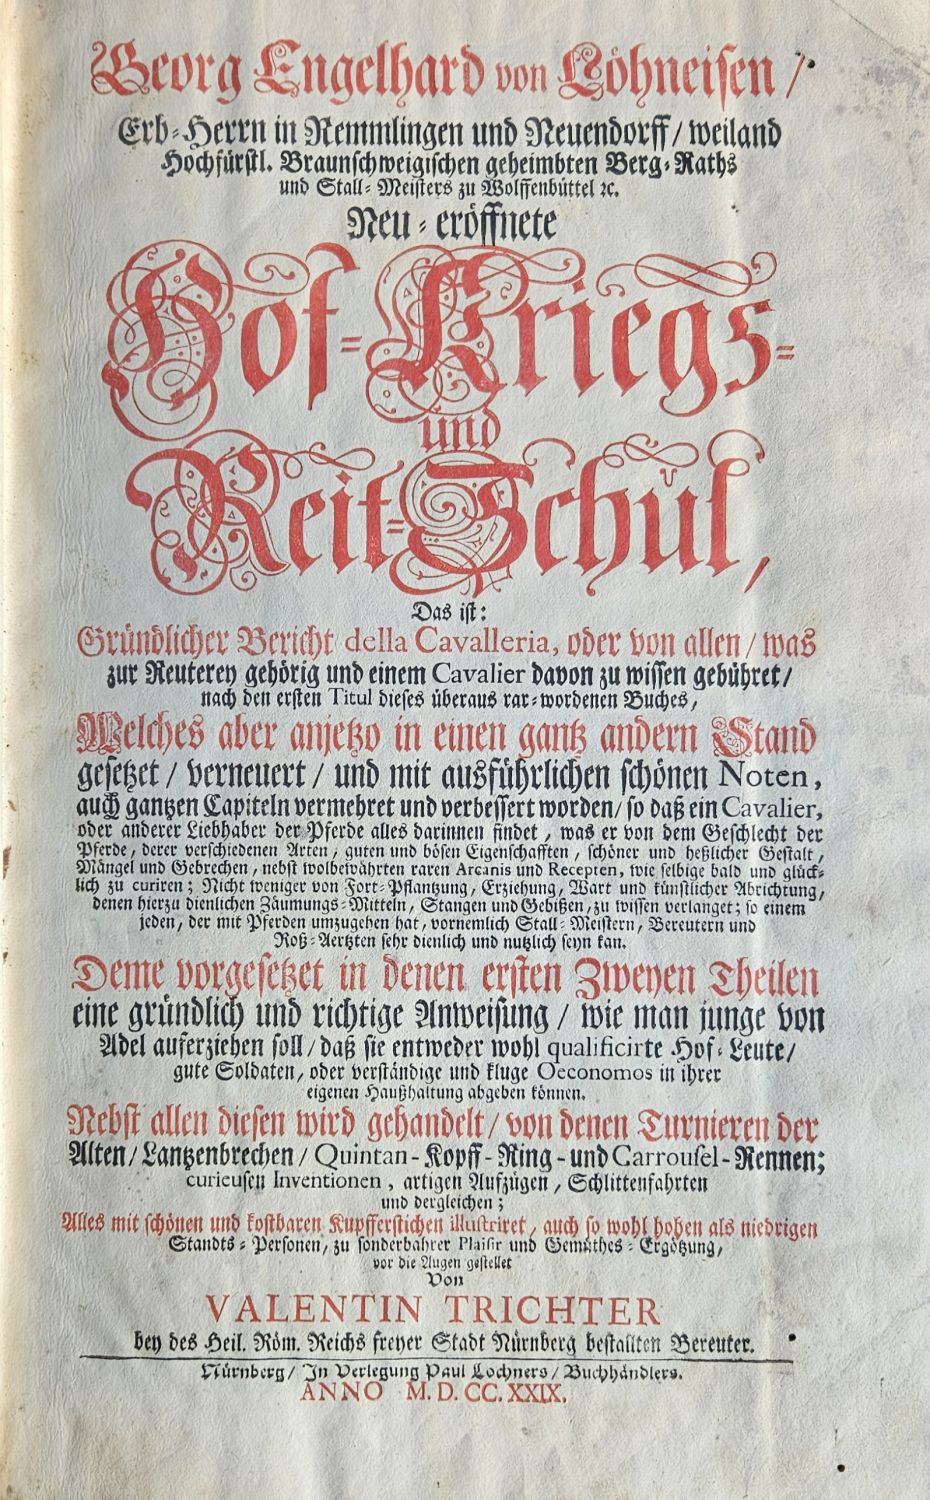 Georg Engelhard von Löhneisen /
Erb-Herrn in Remmlingen und Neuendorff / weiland
Hochfürstl. Braunschweigischen geheimbten Berg-Raths
und Stall-Meisters zu Wolffenbüttel ꝛc.
Neu-eröffnete
Hof-Kriegs-
und
Reit-Schul,
Das ist:
Gründlicher Bericht della Cavalleria, oder von allen / was
zur Reuterey gehörig und einem Cavalier davon zu wissen gebühret /
nach den ersten Titul dieses überaus rar-wordenen Buches,
Welches aber anjetzo in einen gantz andern Stand
gesetzet / verneuert / und mit ausführlichen schönen Noten,
auch gantzen Capiteln vermehret und verbessert worden / so daß ein Cavalier,
oder anderer Liebhaber der Pferde alles darinnen findet, was er von dem Geschlecht der
Pferde, derer verschiedenen Arten, guten und bösen Eigenschafften, schöner und heßlicher Gestalt,
Mängel und Gebrechen, nebst wolbewährten raren Arcanis und Recepten, wie selbige bald und glück-
lich zu curiren; Nicht weniger von Fort-Pflantzung, Erziehung, Wart und künstlicher Abrichtung,
denen hierzu dienlichen Zäumungs-Mitteln, Stangen und Gebißen, zu wissen verlanget; so einem
jeden, der mit Pferden umzugehen hat, vornemlich Stall-Meistern, Bereutern und
Roß-Aertzten sehr dienlich und nutzlich seyn kan.
Deme vorgesetzet in denen ersten Zweyen Theilen
eine gründlich und richtige Anweisung / wie man junge von
Adel auferziehen soll / daß sie entweder wohl qualificirte Hof-Leute /
gute Soldaten, oder verständige und kluge Oeconomos in ihrer
eigenen Haußhaltung abgeben können.
Nebst allen diesen wird gehandelt / von denen Turnieren der
Alten / Lantzenbrechen / Quintan-Kopff-Ring-und Carrousel-Rennen;
curieusen Inventionen, artigen Aufzügen, Schlittenfahrten
und dergleichen;
Alles mit schönen und kostbaren Kupfferstichen illustriret, auch so wohl hohen als niedrigen
Standts-Personen, zu sonderbahrer Plaisir und Gemüthes-Ergötzung,
vor die Augen gestellet
Von
VALENTIN TRICHTER
bey des Heil. Röm. Reichs freyer Stadt Nürnberg bestallten Bereuter.
Nürnberg / In Verlegung Paul Lochners / Buchhändlers.
ANNO M. D. CC. XXIX.